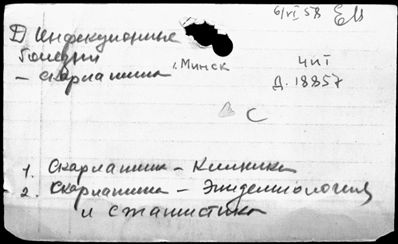 6/VI 58
Д) Инфекционные
болезни
- скарлатина
г. Минск
ЧИТ
Д. 18857
С
1. Скарлатина - Клиника
2. Скарлатина - Эпидемиология
и статистика